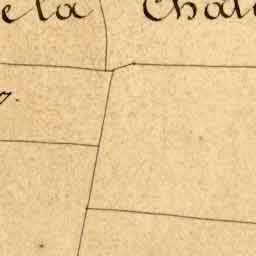 e la Chal
7.